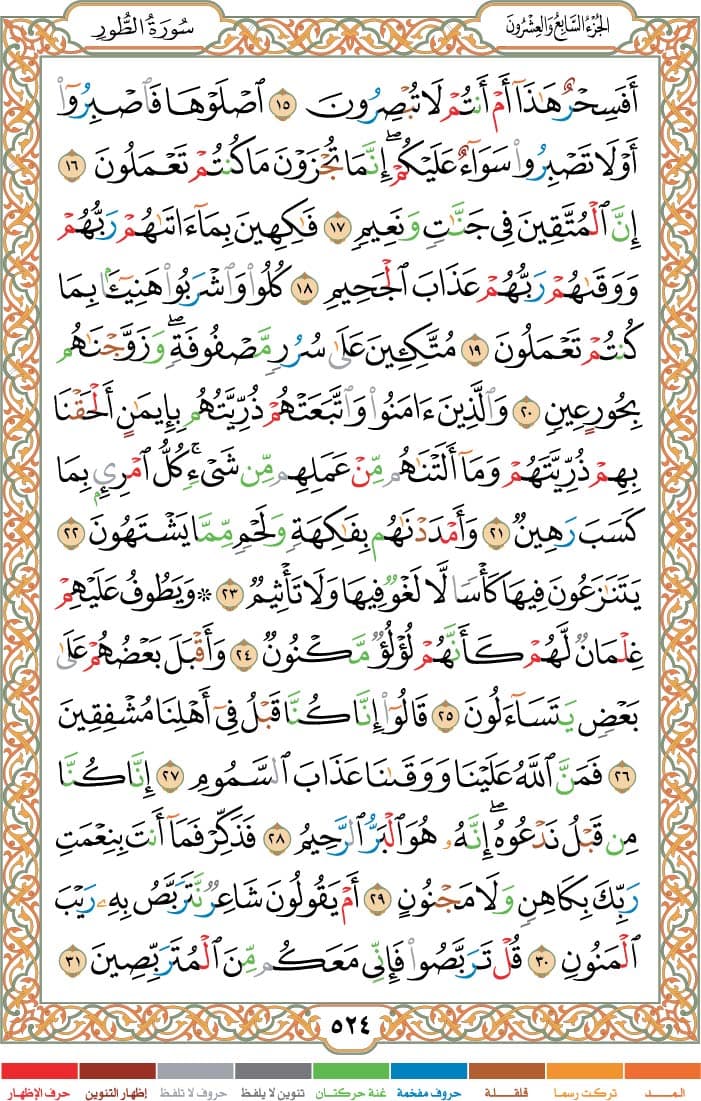 الجزء السابع والعشرون
سورة الطور
أَفَسِحْرٌ هَٰذَآ أَمْ أَنتُمْ لَا تُبْصِرُونَ ١٥ ٱصْلَوْهَا فَٱصْبِرُوٓا۟
أَوْ لَا تَصْبِرُوا۟ سَوَآءٌ عَلَيْكُمْ ۖ إِنَّمَا تُجْزَوْنَ مَا كُنتُمْ تَعْمَلُونَ ١٦
إِنَّ ٱلْمُتَّقِينَ فِى جَنَّٰتٍ وَنَعِيمٍ ١٧ فَٰكِهِينَ بِمَآ ءَاتَىٰهُمْ رَبُّهُمْ
وَوَقَىٰهُمْ رَبُّهُمْ عَذَابَ ٱلْجَحِيمِ ١٨ كُلُوا۟ وَٱشْرَبُوا۟ هَنِيٓـًٔۢا بِمَا
كُنتُمْ تَعْمَلُونَ ١٩ مُتَّكِـِٔينَ عَلَىٰ سُرُرٍ مَّصْفُوفَةٍ ۖ وَزَوَّجْنَٰهُم
بِحُورٍ عِينٍ ٢٠ وَٱلَّذِينَ ءَامَنُوا۟ وَٱتَّبَعَتْهُمْ ذُرِّيَّتُهُم بِإِيمَٰنٍ أَلْحَقْنَا
بِهِمْ ذُرِّيَّتَهُمْ وَمَآ أَلَتْنَٰهُم مِّنْ عَمَلِهِم مِّن شَىْءٍ ۚ كُلُّ ٱمْرِئٍۭ بِمَا
كَسَبَ رَهِينٌ ٢١ وَأَمْدَدْنَٰهُم بِفَٰكِهَةٍ وَلَحْمٍ مِّمَّا يَشْتَهُونَ ٢٢
يَتَنَٰزَعُونَ فِيهَا كَأْسًا لَّا لَغْوٌ فِيهَا وَلَا تَأْثِيمٌ ٢٣ ۞ وَيَطُوفُ عَلَيْهِمْ
غِلْمَانٌ لَّهُمْ كَأَنَّهُمْ لُؤْلُؤٌ مَّكْنُونٌ ٢٤ وَأَقْبَلَ بَعْضُهُمْ عَلَىٰ
بَعْضٍ يَتَسَآءَلُونَ ٢٥ قَالُوٓا۟ إِنَّا كُنَّا قَبْلُ فِىٓ أَهْلِنَا مُشْفِقِينَ
٢٦ فَمَنَّ ٱللَّهُ عَلَيْنَا وَوَقَىٰنَا عَذَابَ ٱلسَّمُومِ ٢٧ إِنَّا كُنَّا
مِن قَبْلُ نَدْعُوهُ ۖ إِنَّهُۥ هُوَ ٱلْبَرُّ ٱلرَّحِيمُ ٢٨ فَذَكِّرْ فَمَآ أَنتَ بِنِعْمَتِ
رَبِّكَ بِكَاهِنٍ وَلَا مَجْنُونٍ ٢٩ أَمْ يَقُولُونَ شَاعِرٌ نَّتَرَبَّصُ بِهِۦ رَيْبَ
ٱلْمَنُونِ ٣٠ قُلْ تَرَبَّصُوا۟ فَإِنِّى مَعَكُم مِّنَ ٱلْمُتَرَبِّصِينَ ٣١
٥٢٤
المــــد
تركت رسما
قلقلة
حروف مفخمة
غنة حركتان
تنوين لا يلفظ
حروف لا تلفظ
إظهار التنوين
حرف الإظهار